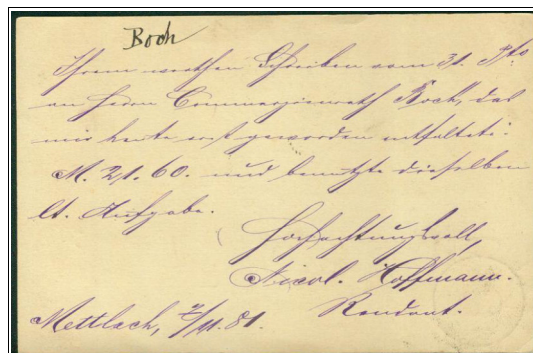 Boch
Ihrem werthen Schreiben vom 31. Pto
an Herrn Commerzienrath Boch, das
mir heute erst geworden entfaltete:
M. 21. 60. und benutzte dieselben
lt. Aufgabe.
Hochachtungsvoll
Nicol. Hoffmann.
Rendant.
Mettlach, 2/11. 81.